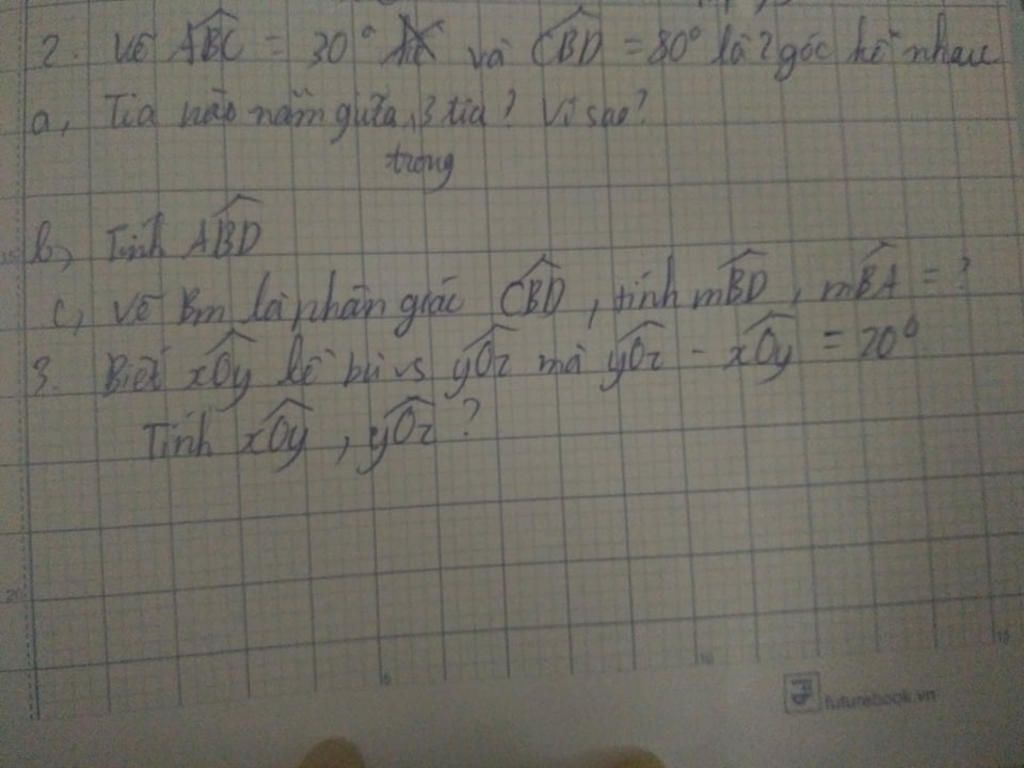 2. Vẽ ABC = 30° và CBD = 80° là 2 góc kề nhau
a, Tia nào nằm giữa 3 tia? Vì sao?
trong
b, Tính ABD
c, Vẽ Bm là phân giác CBD, tính mBD, mBA = ?
3. Biết xOy kề bù vs yOz mà yOz - xOy = 20°
Tính xOy, yOz?
15
20
5
10
15
futurebook.vn